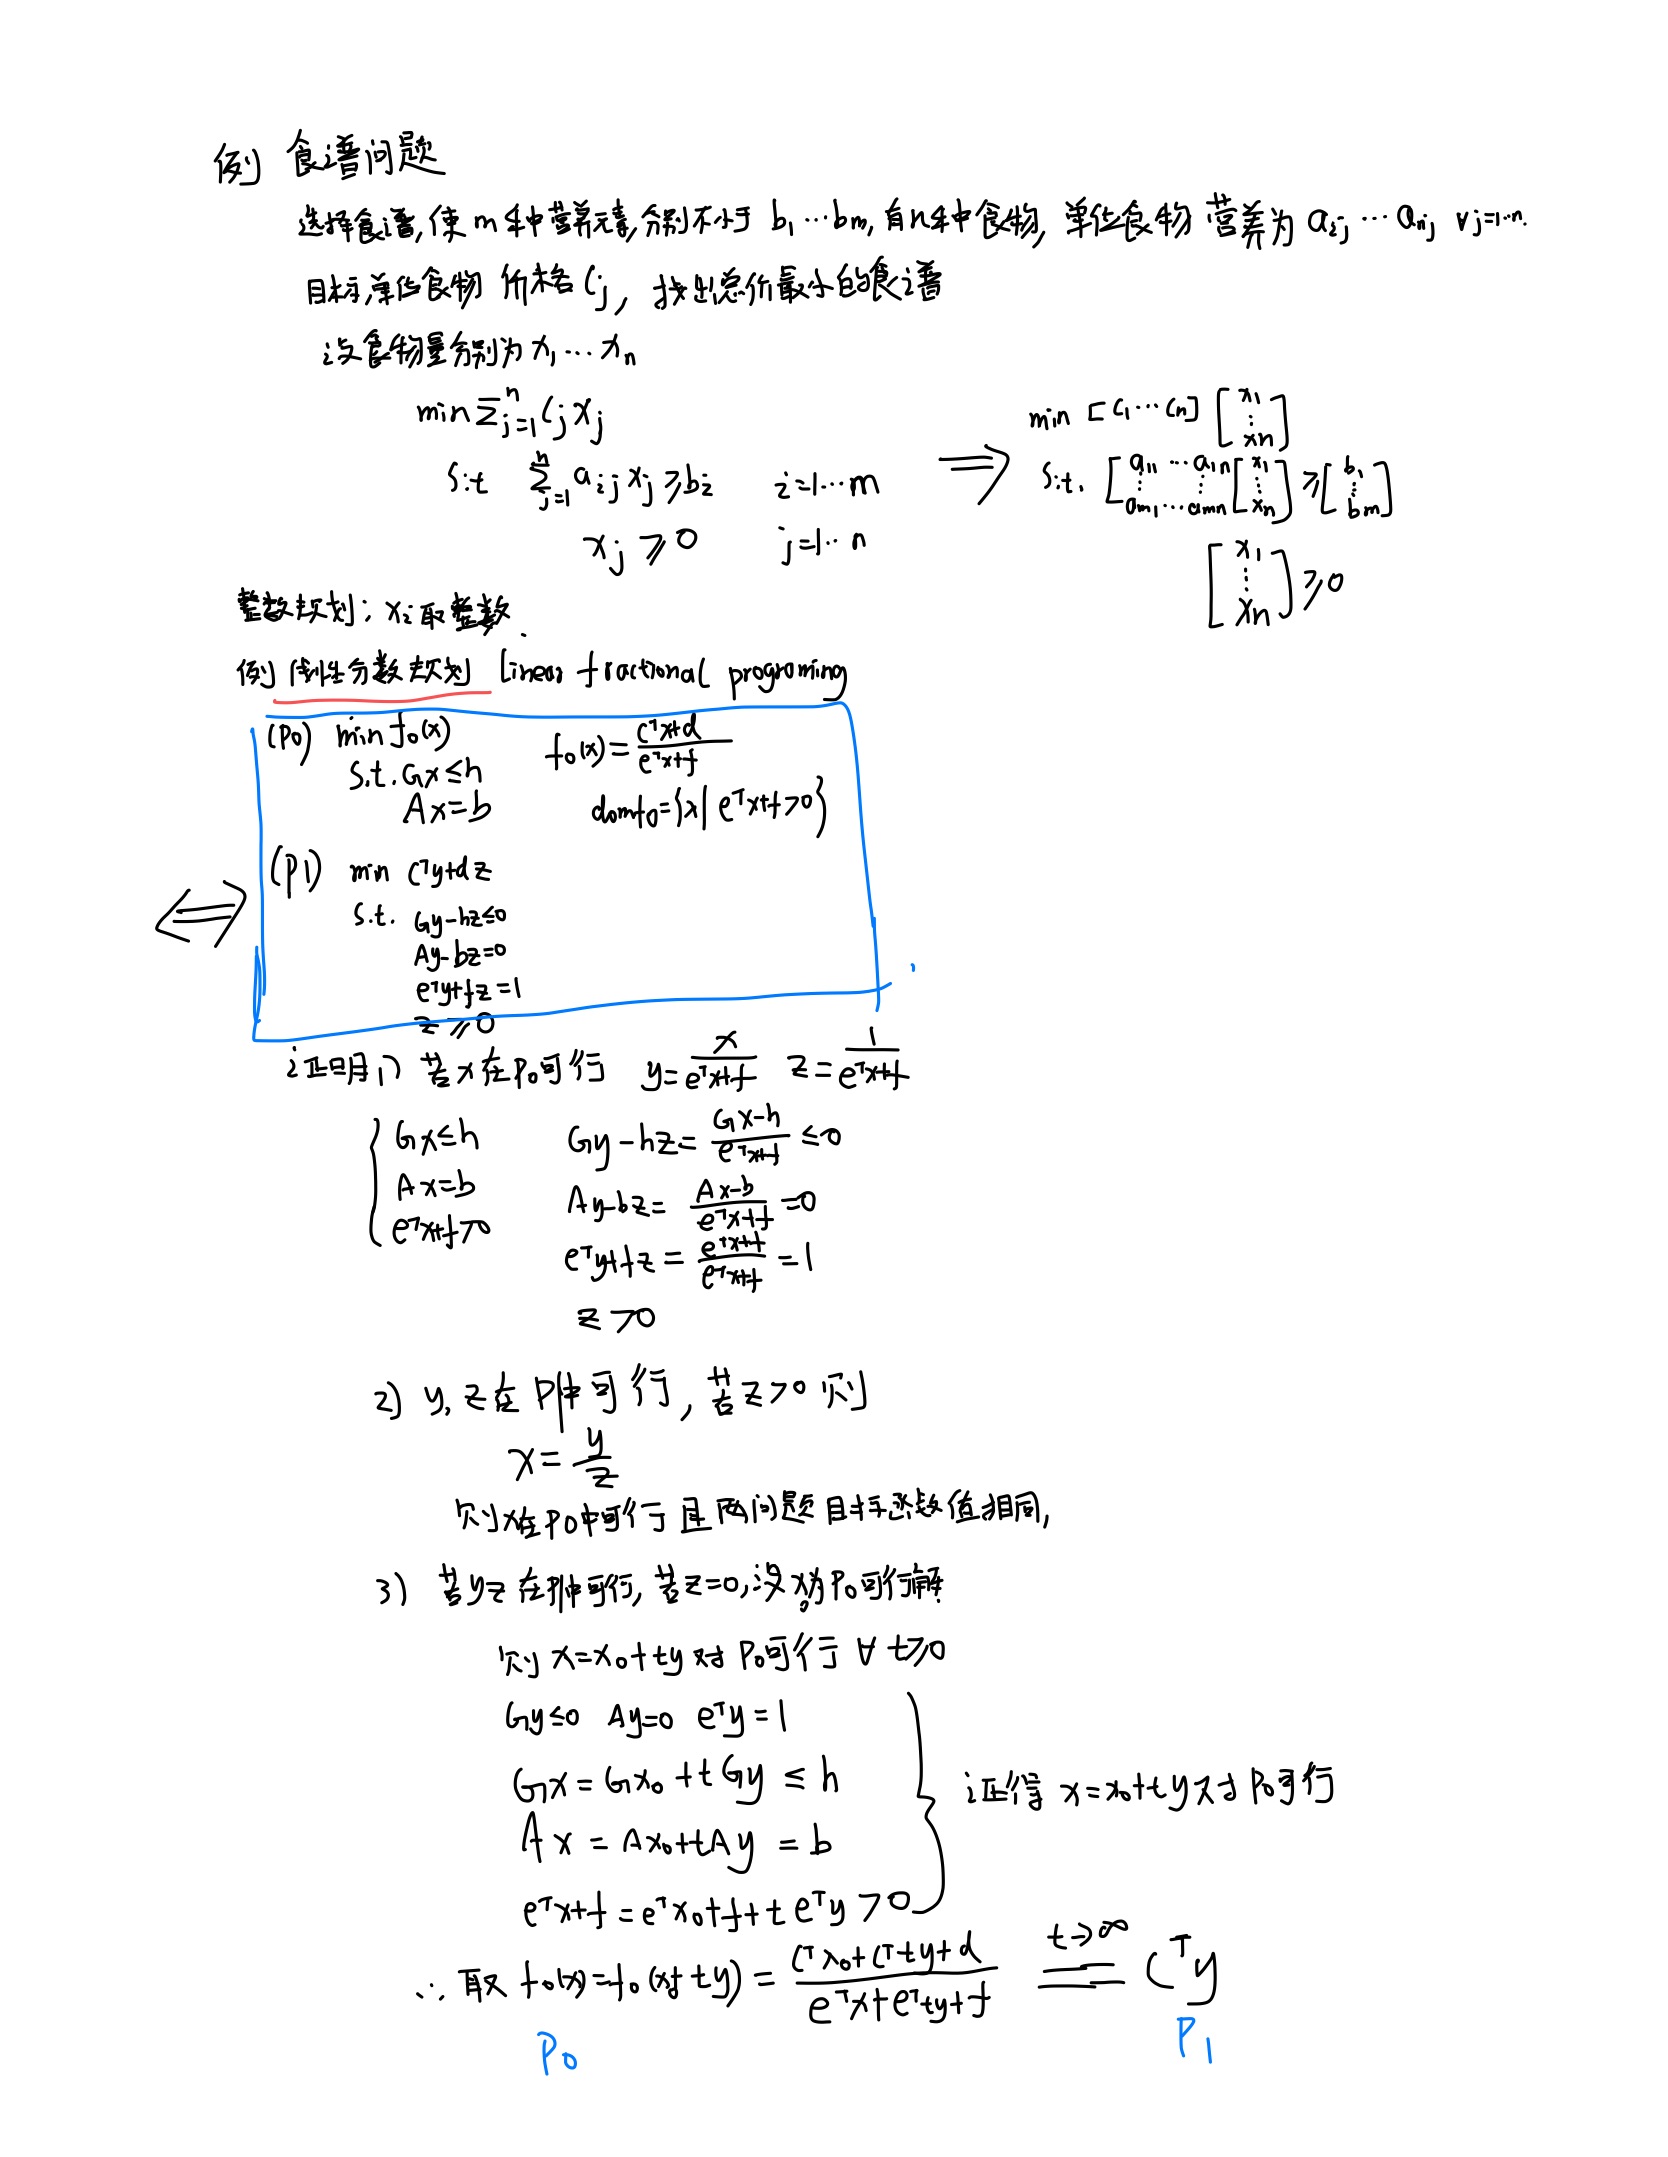 例 食谱问题
选择食谱,使m种营养元素,分别不小于 b₁…bm, 有n种食物, 单位食物 营养为 aᵢⱼ…aₙⱼ ∀j=1…n.
目标,单位食物 价格Cⱼ, 找出总价最小的食谱
设食物量分别为 x₁…xₙ
min Σⁿⱼ₌₁ Cⱼxⱼ
s.t Σⁿⱼ₌₁ aᵢⱼxⱼ ≥ bᵢ i=1…m
xⱼ ≥ 0 j=1…n
⟹ min [C₁…Cₙ] [x₁ ⋮ xn]
s.t. [a₁₁ … a₁n ⋮ ⋮ am₁ … amn] [x₁ ⋮ xn] ≥ [b₁ ⋮ bm]
[x₁ ⋮ xn] ≥ 0
整数规划; xᵢ取整数.
例 线性分数规划 linear fractional programing
(P0) min f₀(x) f₀(x) = (Cᵀx+d)/(eᵀx+f)
s.t. Gx ≤ h
Ax = b domf₀={x| eᵀx+f>0}
⟺ (P1) min Cᵀy+dz
s.t. Gy-hz≤0
Ay-bz=0
eᵀy+fz=1
z ≥ 0
证明 1) 若x在P0可行 y = x/(eᵀx+f) z = 1/(eᵀx+f)
{ Gx≤h Gy-hz = (Gx-h)/(eᵀx+f) ≤0
Ax=b Ay-bz = (Ax-b)/(eᵀx+f) =0
eᵀx+f>0 eᵀy+fz = (eᵀx+f)/(eᵀx+f) = 1
z >0
2) y, z在 P1中可行, 若z>0 则
x = y/z
则x在P0中可行 且两问题目标函数值相同,
3) 若yz在P1中可行, 若z=0,设x₀为P0可行解
则 x=x₀+ty 对 P0可行 ∀ t≥0
Gy≤0 Ay=0 eᵀy=1
Gx = Gx₀ + tGy ≤ h
Ax = Ax₀+tAy = b
eᵀx+f = eᵀx₀+f+t eᵀy >0
} 证得 x=x₀+ty对 P0可行
∴ 取 f₀(x)=f₀(x₀+ty) = (Cᵀx₀+Cᵀty+d)/(eᵀx+eᵀty+f) =(t→∞)= Cᵀy
P0 P1